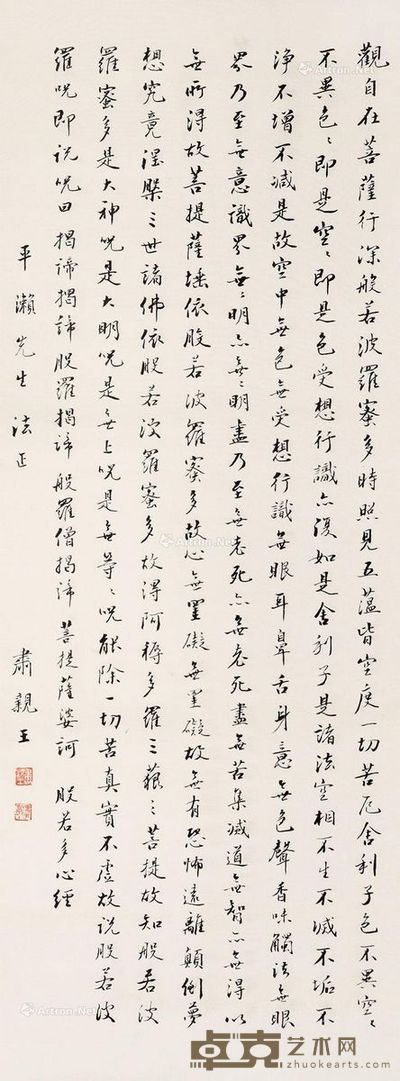 觀自在菩薩行深般若波羅蜜多時照見五蘊皆空度一切苦厄舍利子色不異空〻
不異色〻即是空〻即是色受想行識亦復如是舍利子是諸法空相不生不滅不垢不
淨不增不減是故空中無色無受想行識無眼耳鼻舌身意無色聲香味觸法無眼
界乃至無意識界無〻明亦無〻明盡乃至無老死亦無老死盡無苦集滅道無智亦無得以
無所得故菩提薩埵依般若波羅蜜多故心無罣礙無罣礙故無有恐怖遠離顛倒夢
想究竟涅槃三世諸佛依般若波羅蜜多故得阿耨多羅三藐三菩提故知般若波
羅蜜多是大神咒是大明咒是無上咒是無等〻咒能除一切苦真實不虛故說般若波
羅咒即說咒曰 揭諦揭諦般羅揭諦般羅僧揭諦菩提薩婆訶 般若多心經
平瀨先生法正 肅親王
卓克艺术网
www.zhuokearts.com